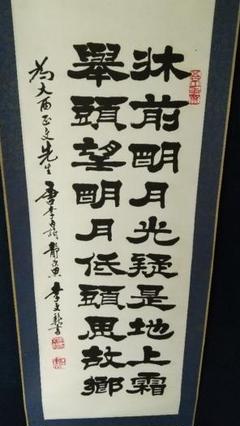 牀前明月光疑是地上霜
舉頭望明月低頭思故鄉
為大西正文先生 唐李白詩 李文